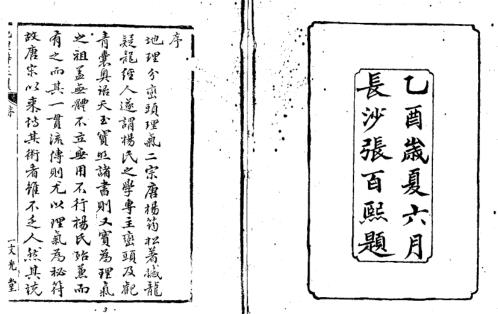 乙酉歲夏六月
長沙張百熙題
序
地理分巒頭理氣二宗唐楊筠松著撼龍
疑龍經人遂謂楊氏之學專主巒頭及觀
青囊奧語天玉寶照諸書則又實為理氣
之祖蓋無體不立無用不行楊氏殆兼而
有之而其一貫流傳則尤以理氣為秘符
故唐宋以來其術者雖不乏人然其説
堂